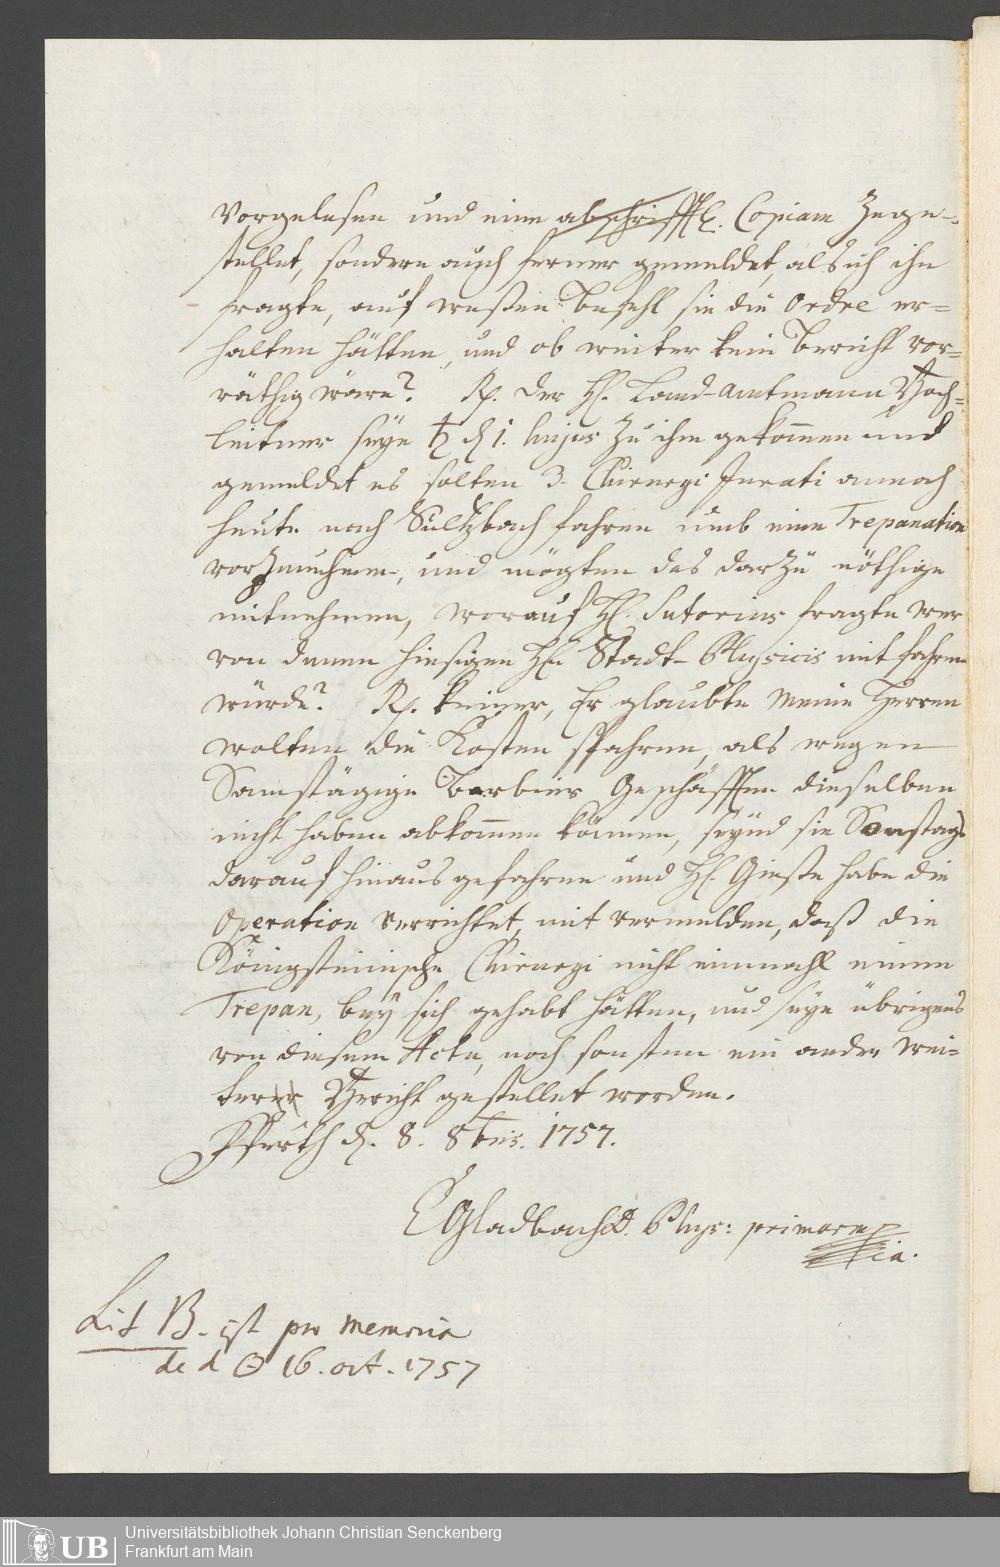 vorgelesen und eine abschrifftl. Copiam Zuge-
stellet, sondern auch ferner gemeldet, als ich ihn
fragte, auf weßen Befehl sie die Ordre er=
halten hätten, und ob weiter kein Bericht vor=
räthig wäre? Rp. der H. Land-amtmann
leitner seye ♄ d 1. hujus zu ihm gekommen und
gemeldet es solten 3. Chirurgi Jurati annoch
heute nach Sultzbach fahren umb eine Trepanation
vorzunehmen, und mögten das darzu nöthige
mitnehmen, worauf H. Sutorius fragte wer
von denen hiesigen Hn Stadt-Physicis mit fahren
würde? Rp. keiner, Er glaubte meine Herren
wolten die Kosten spahren, als wegen
Samstägige Barbier Geschäfften dieselben
nicht haben abkommen können, seynd sie Sonstags
darauf hinaus gefahren und H. Gieste habe die
Operation verrichtet, mit vermelden, daß die
Königsteinische Chirurgi nicht einmahl einen
Trepan, bey sich gehabt hätten, und seye übrigens
von diesem Actu, noch sonsten ein ander wei-
terer Bericht gestellet worden.
Ffurth d. 8. 8bris. 1757.
Gladbach D. Phys: primar
ia.
Lit B. ist pro memoria
de d ☉ 16. oct. 1757
Universitätsbibliothek Johann Christian Senckenberg
Frankfurt am Main
UB